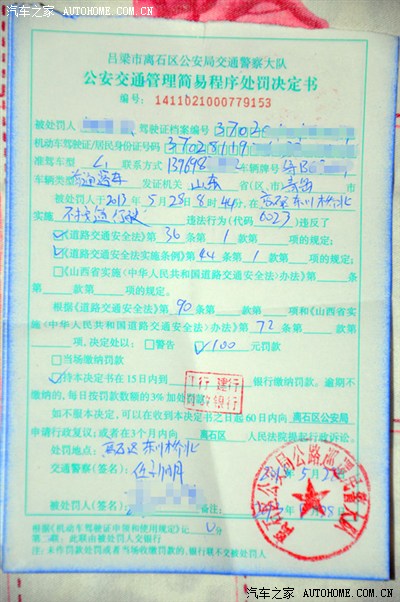 汽车之家 AUTOHOME.COM.CN 汽车之家 AUTOHOME.COM.CN
吕梁市离石区公安局交通警察大队
公安交通管理简易程序处罚决定书
编号：1411021000779153
被处罚人 驾驶证档案编号 3702
机动车驾驶证/居民身份证号码 370281
准驾车型 C1 联系方式 139698 车辆牌号 鲁B6
车辆类型 普通客车 发证机关 山东 省(区、市) 青岛
市 被处罚人于2013年5月28日8时44分，在 离石区东川桥北
实施 违法行为(代码 6023)违反了
☑《道路交通安全法》第 36 条第 1 款第 项的规定；
☑《道路交通安全法实施条例》第 44 条第 1 款第 项的规定；
☐《山西省实施〈中华人民共和国道路交通安全法〉办法》第
条第 款第 项的规定。
根据《道路交通安全法》第 90 条第 款第 项和《山西省实
施〈中华人民共和国道路交通安全法〉办法》第 72 条第 款第
项，决定处以：☐警告 ☑100 元罚款
☐当场缴纳罚款
☑持本决定书在15日内到 工行 建行 银行缴纳罚款。逾期不
缴纳的，每日按罚款数额的3%加处罚款
如不服本决定，可以在收到本决定书之日起60日内向 离石区公安局
申请行政复议；或者在3个月内向 离石区 人民法院提起行政诉讼。
处罚地点：离石区东川桥北
交通警察：
被处罚人(签名)：
根据《机动车驾驶证申领和使用规定》记 0 分
第二联：此联由被处罚人交银行
注：未作罚款处罚或者当场收缴罚款的，银行联不交被处罚人
汽车之家 AUTOHOME.COM.CN 汽车之家 AUTOHOME.COM.CN